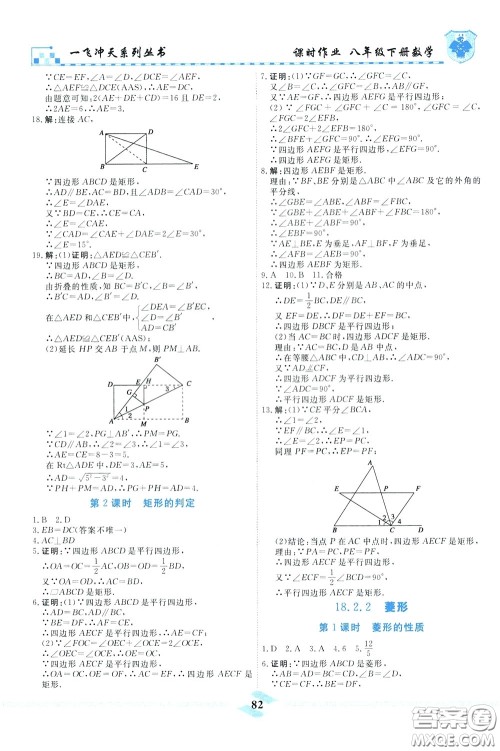 一飞冲天系列丛书
课时作业 八年级下册数学
∵CE=EF,∠A=∠D,∠DCE=∠AEF,
∴△AEF≌△DCE(AAS),∴AE=DC.
由题意可知:2(AE+DE+CD)=16且DE=2,
∴2AE=6,∴AE=3.
18.解:连接AC,
A
D
B
C
E
∵四边形ABCD是矩形,
∴AD∥BE,AC=BD,且∠ADB=∠CAD=30°,
∴∠E=∠DAE.
又∵BD=CE,∴CE=CA,∴∠E=∠CAE.
∵∠CAD=∠CAE+∠DAE=2∠E=30°,
∴∠E=15°.
19.解:(1)△AED≌△CEB′.
证明:∵四边形ABCD是矩形,
∴BC=AD,∠B=∠D.
由折叠的性质,知BC=B′C,∠B=∠B′,
∴B′C=AD,∠B′=∠D.
在△AED和△CEB′中,
∠DEA=∠B′EC
∠D=∠B′
AD=CB′
∴△AED≌△CEB′(AAS).
(2)延长HP交AB于点M,则PM⊥AB.
B′
D
E
H
C
G
P
A
M
B
1
2
∵∠1=∠2,PG⊥AB′,∴PM=PG.
∵CD∥AB,∴∠2=∠3,∴∠1=∠3,
∴AE=CE=8-3=5.
在Rt△ADE中,DE=3,
∴AD=√(5²-3²)=4.
∵PH+PM=AD,∴PG+PH=AD=4.
第2课时 矩形的判定
1.B 2.D
3.EB=DC(答案不唯一)
4.AC⊥BD
5.证明:∵四边形ABCD是平行四边形,
∴OA=OC=1/2AC,OB=OD=1/2BD.
又∵OA=OD,∴AC=BD,
∴四边形ABCD是矩形.
6.证明:(1)∵四边形ABCD是平行四边形,
∴AD∥BC.
又∵AE∥CF,
∴四边形AECF是平行四边形.
(2)∵四边形AECF是平行四边形,
∴OE=OF=1/2EF,OA=OC=1/2AC.
∵∠OEC=∠OCE,∴OE=OC,∴AC=EF,
∴四边形AECF是矩形.
7.证明:(1)∵GF=GC,∴∠GFC=∠C.
又∵∠B=∠C,∴∠GFC=∠B,∴AB∥GF.
又∵AE=GF,∴四边形AEFG是平行四边形.
(2)∵∠GFC+∠C+∠FGC=180°,∠GFC=∠C,
∠FGC=2∠EFB,
∴2∠GFC+2∠EFB=180°,
∴∠GFC+∠EFB=90°,∴∠EFG=90°.
∵四边形AEFG是平行四边形,
∴四边形AEFG是矩形.
8.解:四边形AEBF是矩形.
理由:∵BF,BE分别是△ABC中∠ABC及它的外角的
平分线,
∴∠GBE=∠ABE,∠ABF=∠FBC.
∵∠GBE+∠ABE+∠ABF+∠FBC=180°,
∴∠ABE+∠ABF=90°,∴∠EBF=90°.
∵AE⊥BE,E为垂足,AF⊥BF,F为垂足,
∴∠AFB=∠AEB=90°,
∴四边形AEBF为矩形.
9.A 10.B 11.合格
12.证明:(1)∵D,E分别是AB,AC的中点,
∴DE=1/2BC,DE∥BC.
又∵EF=DE,∴DF=2DE,∴DF=BC,
∴四边形DBCF是平行四边形.
(2)当AC=BC时,四边形ADCF为矩形.
理由:∵AC=BC,∴△ABC为等腰三角形,
∵D是AB的中点,∴CD⊥AB,
∴在等腰△ABC中,∠ADC=90°.
∵DE=EF,AE=CE,
∴四边形ADCF为平行四边形.
又∵∠ADC=90°,
∴平行四边形ADCF为矩形.
13.解:(1)∵CE平分∠BCA,
∴∠BCE=∠PCE.
∵EF∥BC,∴∠PEC=∠BCE,
∴∠PCE=∠PEC,∴EP=PC.
同理PF=PC,∴EP=PF.
A
E
P
F
B
C
(2)结论:当点P在AC中点时,四边形AECF是矩形.
理由:∵PA=PC,PE=PF,
∴四边形AECF是平行四边形.
∵∠BCE=∠ACE,∠ACF=∠DCF,
∴∠ECF=1/2×180°=90°,
∴四边形AECF是矩形.
18.2.2 菱形
第1课时 菱形的性质
1.D 2.A 3.A 4.6 5.12/5
6.证明:∵四边形ABCD是菱形,
∴AB=BC,∠A=∠C.
82